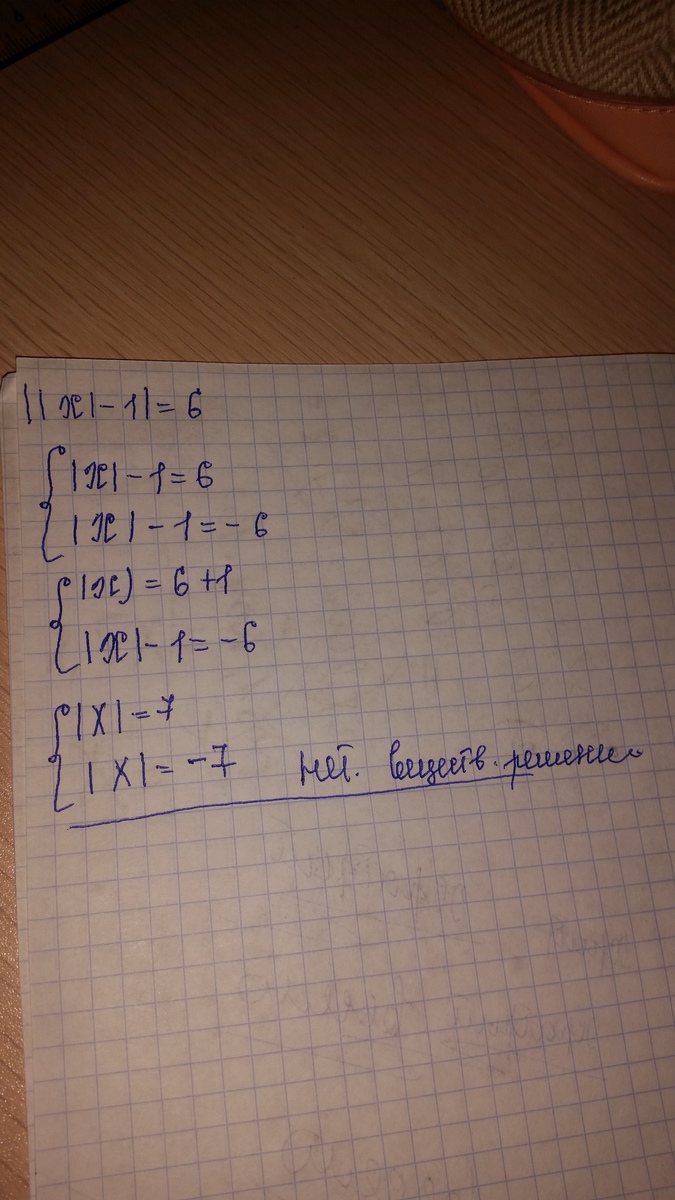 ||x|-1|= 6
{|x|-1=6
|x|-1=-6
{|x)=6+1
|x|-1=-6
{|X|=7
|X|=-7 нет. веществ. решений